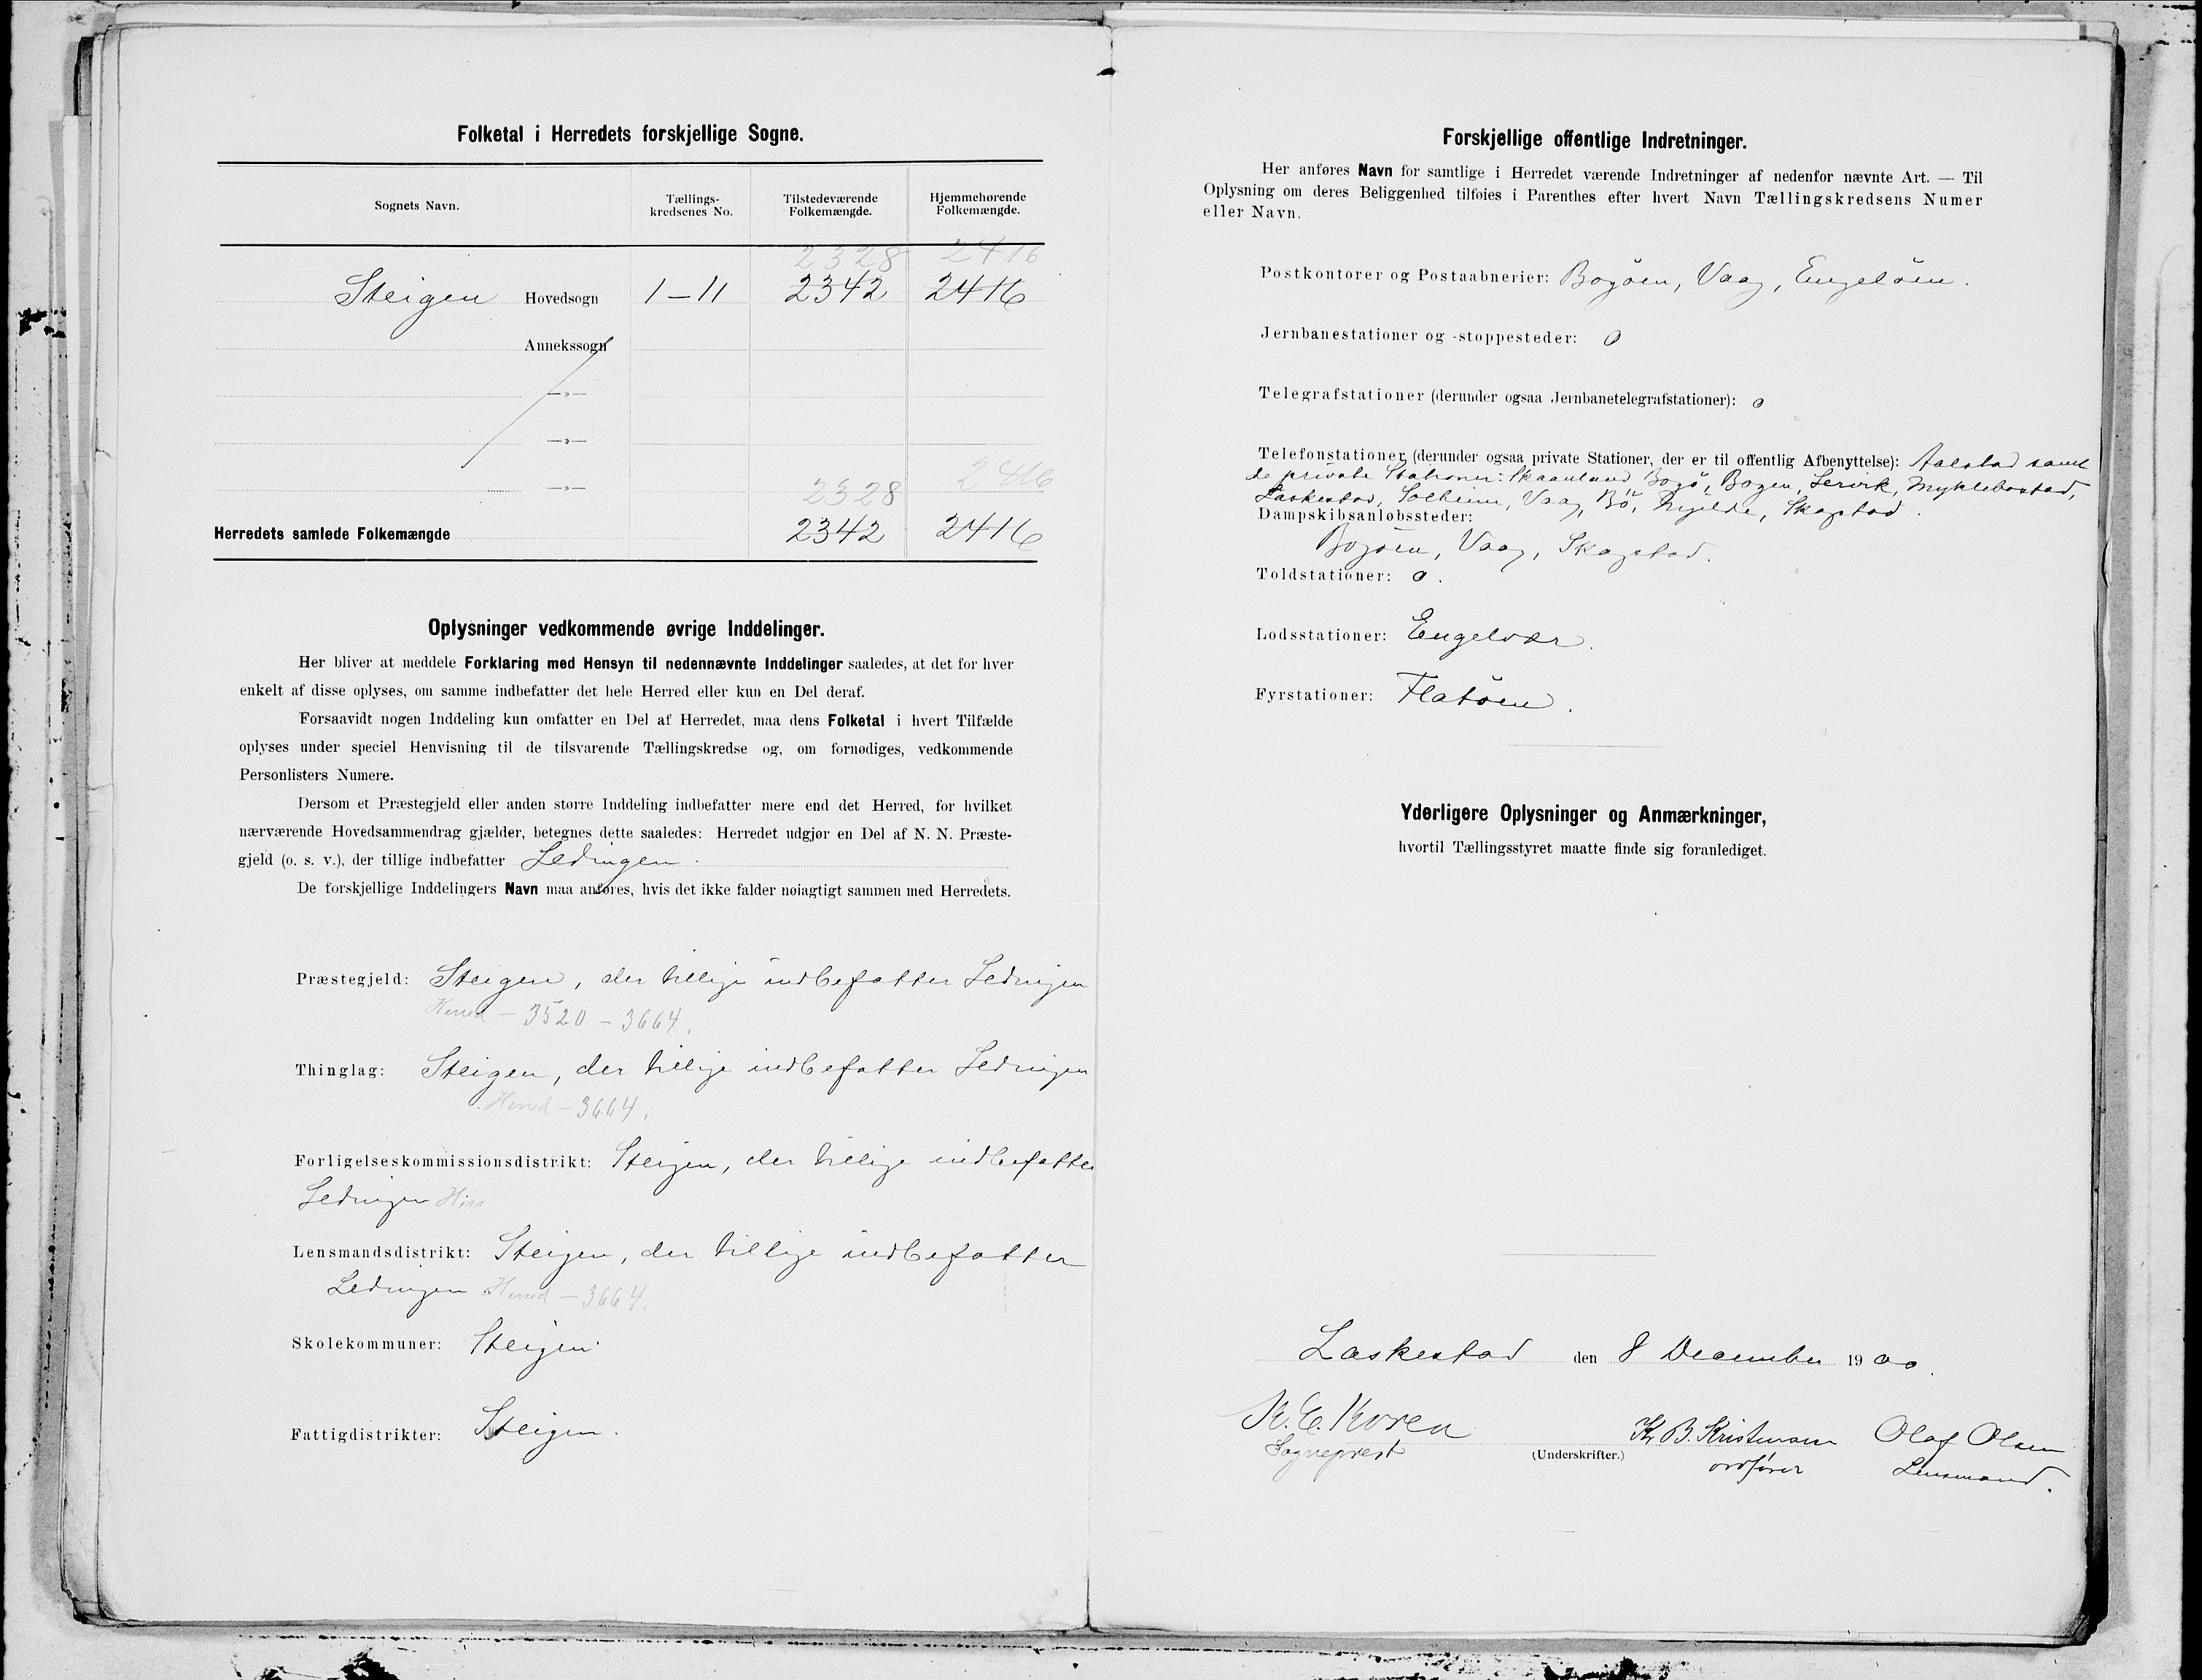 Folketal i Herredets forskjellige Sogne.
Sognets Navn.
Tællings-
kredsenes No.
Tilstedeværende
Folkemængde.
Hjemmehørende
Folkemængde.
2328 2416
Steigen Hovedsogn 1–11 2342 2416
Annekssogn
—»—
—»—
2328 2416
—»—
Herredets samlede Folkemængde 2342 2416
Oplysninger vedkommende øvrige Inddelinger.
Her bliver at meddele Forklaring med Hensyn til nedennævnte Inddelinger saaledes, at det for hver
enkelt af disse oplyses, om samme indbefatter det hele Herred eller kun en Del deraf.
Forsaavidt nogen Inddeling kun omfatter en Del af Herredet, maa dens Folketal i hvert Tilfælde
oplyses under speciel Henvisning til de tilsvarende Tællingskredse og, om fornødiges, vedkommende
Personlisters Numere.
Dersom et Præstegjeld eller anden større Inddeling indbefatter mere end det Herred, for hvilket
nærværende Hovedsammendrag gjælder, betegnes dette saaledes: Herredet udgjør en Del af N. N. Præste-
gjeld (o. s. v.), der tillige indbefatter Ledingen.
De forskjellige Inddelingers Navn maa anføres, hvis det ikke falder nøiagtigt sammen med Herredets.
Præstegjeld: Steigen, der tillige indbefatter Ledingen
Herred – 3520 – 3664.
Thinglag: Steigen, der tillige indbefatter Ledingen
Herred – 3664.
Forligelseskommissionsdistrikt: Steigen, der tillige indbefatter
Ledingen
Lensmandsdistrikt: Steigen, der tillige indbefatter
Ledingen Herred – 3664.
Skolekommuner: Steigen.
Fattigdistrikter: Steigen.
Forskjellige offentlige Indretninger.
Her anføres Navn for samtlige i Herredet værende Indretninger af nedenfor nævnte Art. — Til
Oplysning om deres Beliggenhed tilføies i Parenthes efter hvert Navn Tællingskredsens Numer
eller Navn.
Postkontorer og Postaabnerier: Bogöen, Vaag, Engelöen.
Jernbanestationer og -stoppesteder: 0
Telegrafstationer (derunder ogsaa Jernbanetelegrafstationer): 0
Telefonstationer (derunder ogsaa private Stationer, der er til offentlig Afbenyttelse): Aalstad samt
de private Stationer: Skaanland, Bogö, Bogen, Lervik, Myklebostad,
Laskestad, Solheim, Vaag, Bö, Nyelde, Skagstad.
Dampskibsanløbssteder:
Bogöen, Vaag, Skagstad.
Toldstationer: 0.
Lodsstationer: Engelvær.
Fyrstationer: Flatöen.
Yderligere Oplysninger og Anmærkninger,
hvortil Tællingsstyret maatte finde sig foranlediget.
Laskestad den 8 December 1900.
K. E. Koren Kr B. Kristensen Olaf Olsen
Sogneprest (Underskrifter.) ordförer Lensmand.